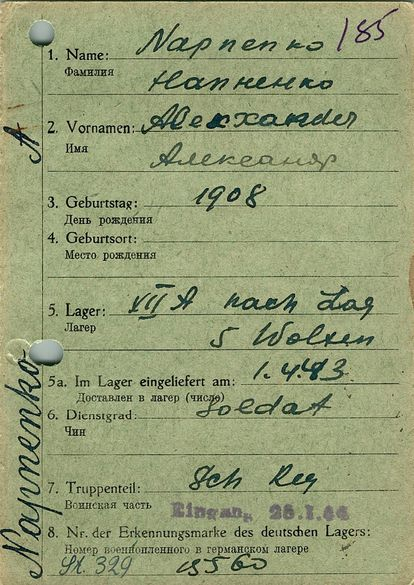 185
1. Name: Napnenko
Фамилия Напненко
2. Vornamen: Alexxander
Имя Александр
3. Geburtstag: 1908
День рождения
4. Geburtsort:
Место рождения
5. Lager: VII A nach Lag
Лагер 5 Wolzen
5a. Im Lager eingeliefert am: 1.4.43
Доставлен в лагер (число)
6. Dienstgrad: Soldat
Чин
7. Truppenteil: Sch Reg
Воинская часть Eingang 28.1.44
8. Nr. der Erkennungsmarke des deutschen Lagers:
Номер военнопленного в германском лагере
St. 329
Napnenko A